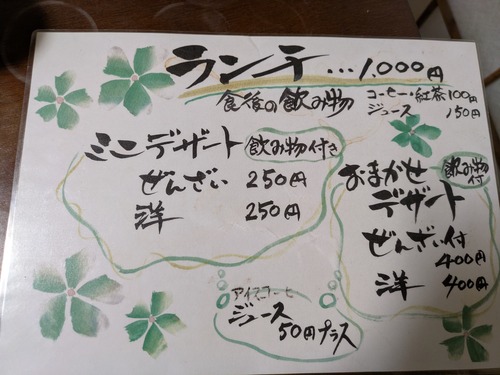 ランチ…1,000円
食後の飲み物 コーヒー・紅茶100円
ジュース 150円
ミニデザート 飲み物付き
ぜんざい 250円
洋 250円
おまかせ 飲み物付
デザート
ぜんざい付
400円
洋 400円
アイスコーヒー
ジュース
50円プラス